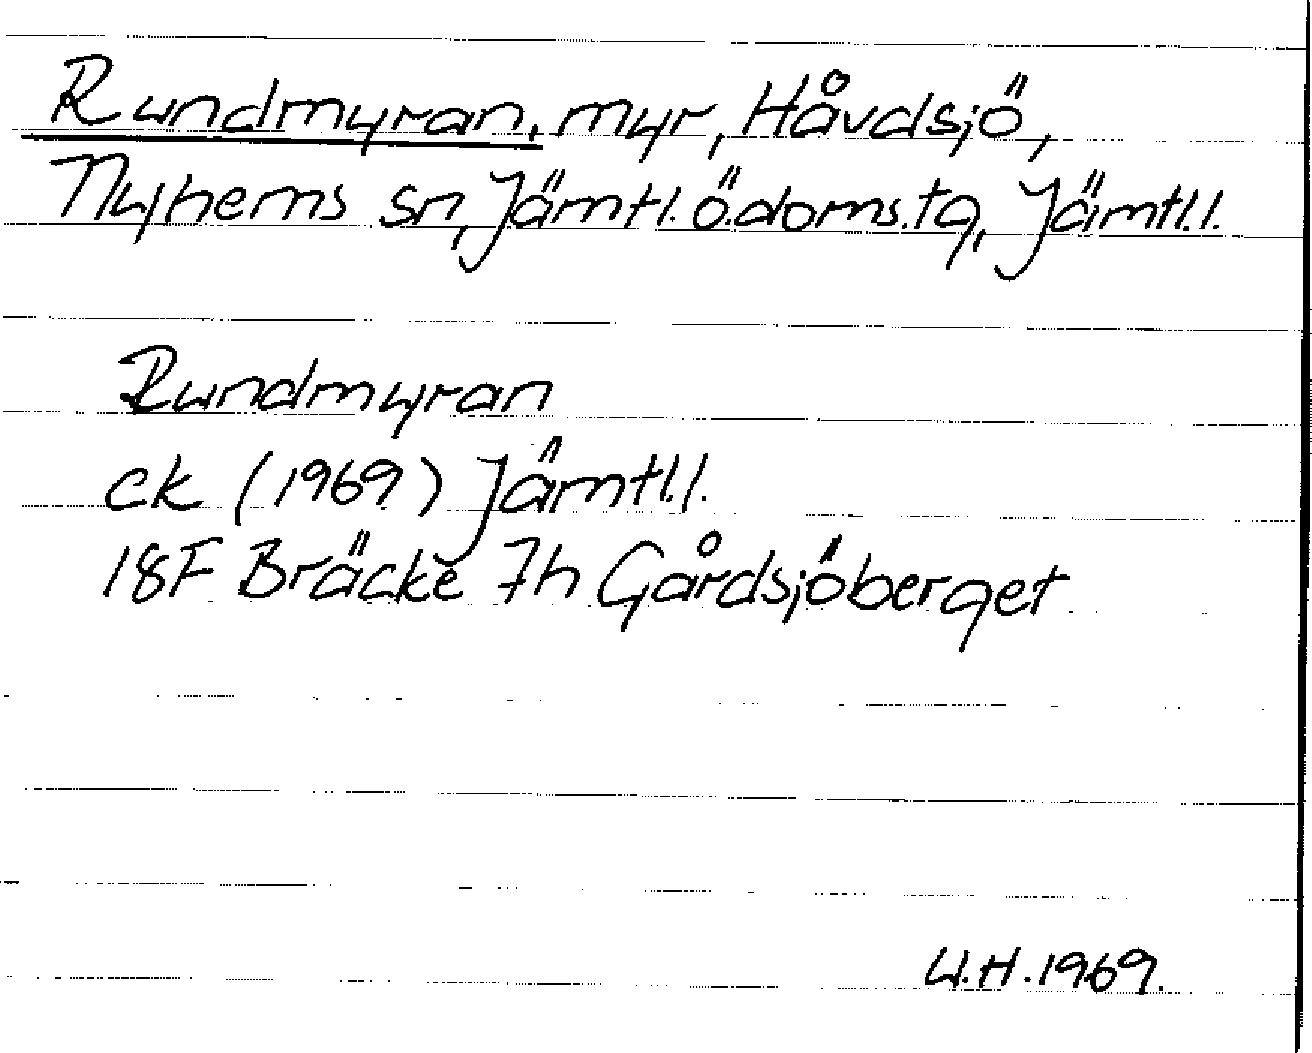 Rundmyran, myr, Håvdsjö,
Nyhems sn, Jämtl. ö. doms. tg, Jämtl. l.
Rundmyran
ck (1969) Jämtl. l.
18F Bräcke 7h Gårdsjöberget
U.H. 1969.